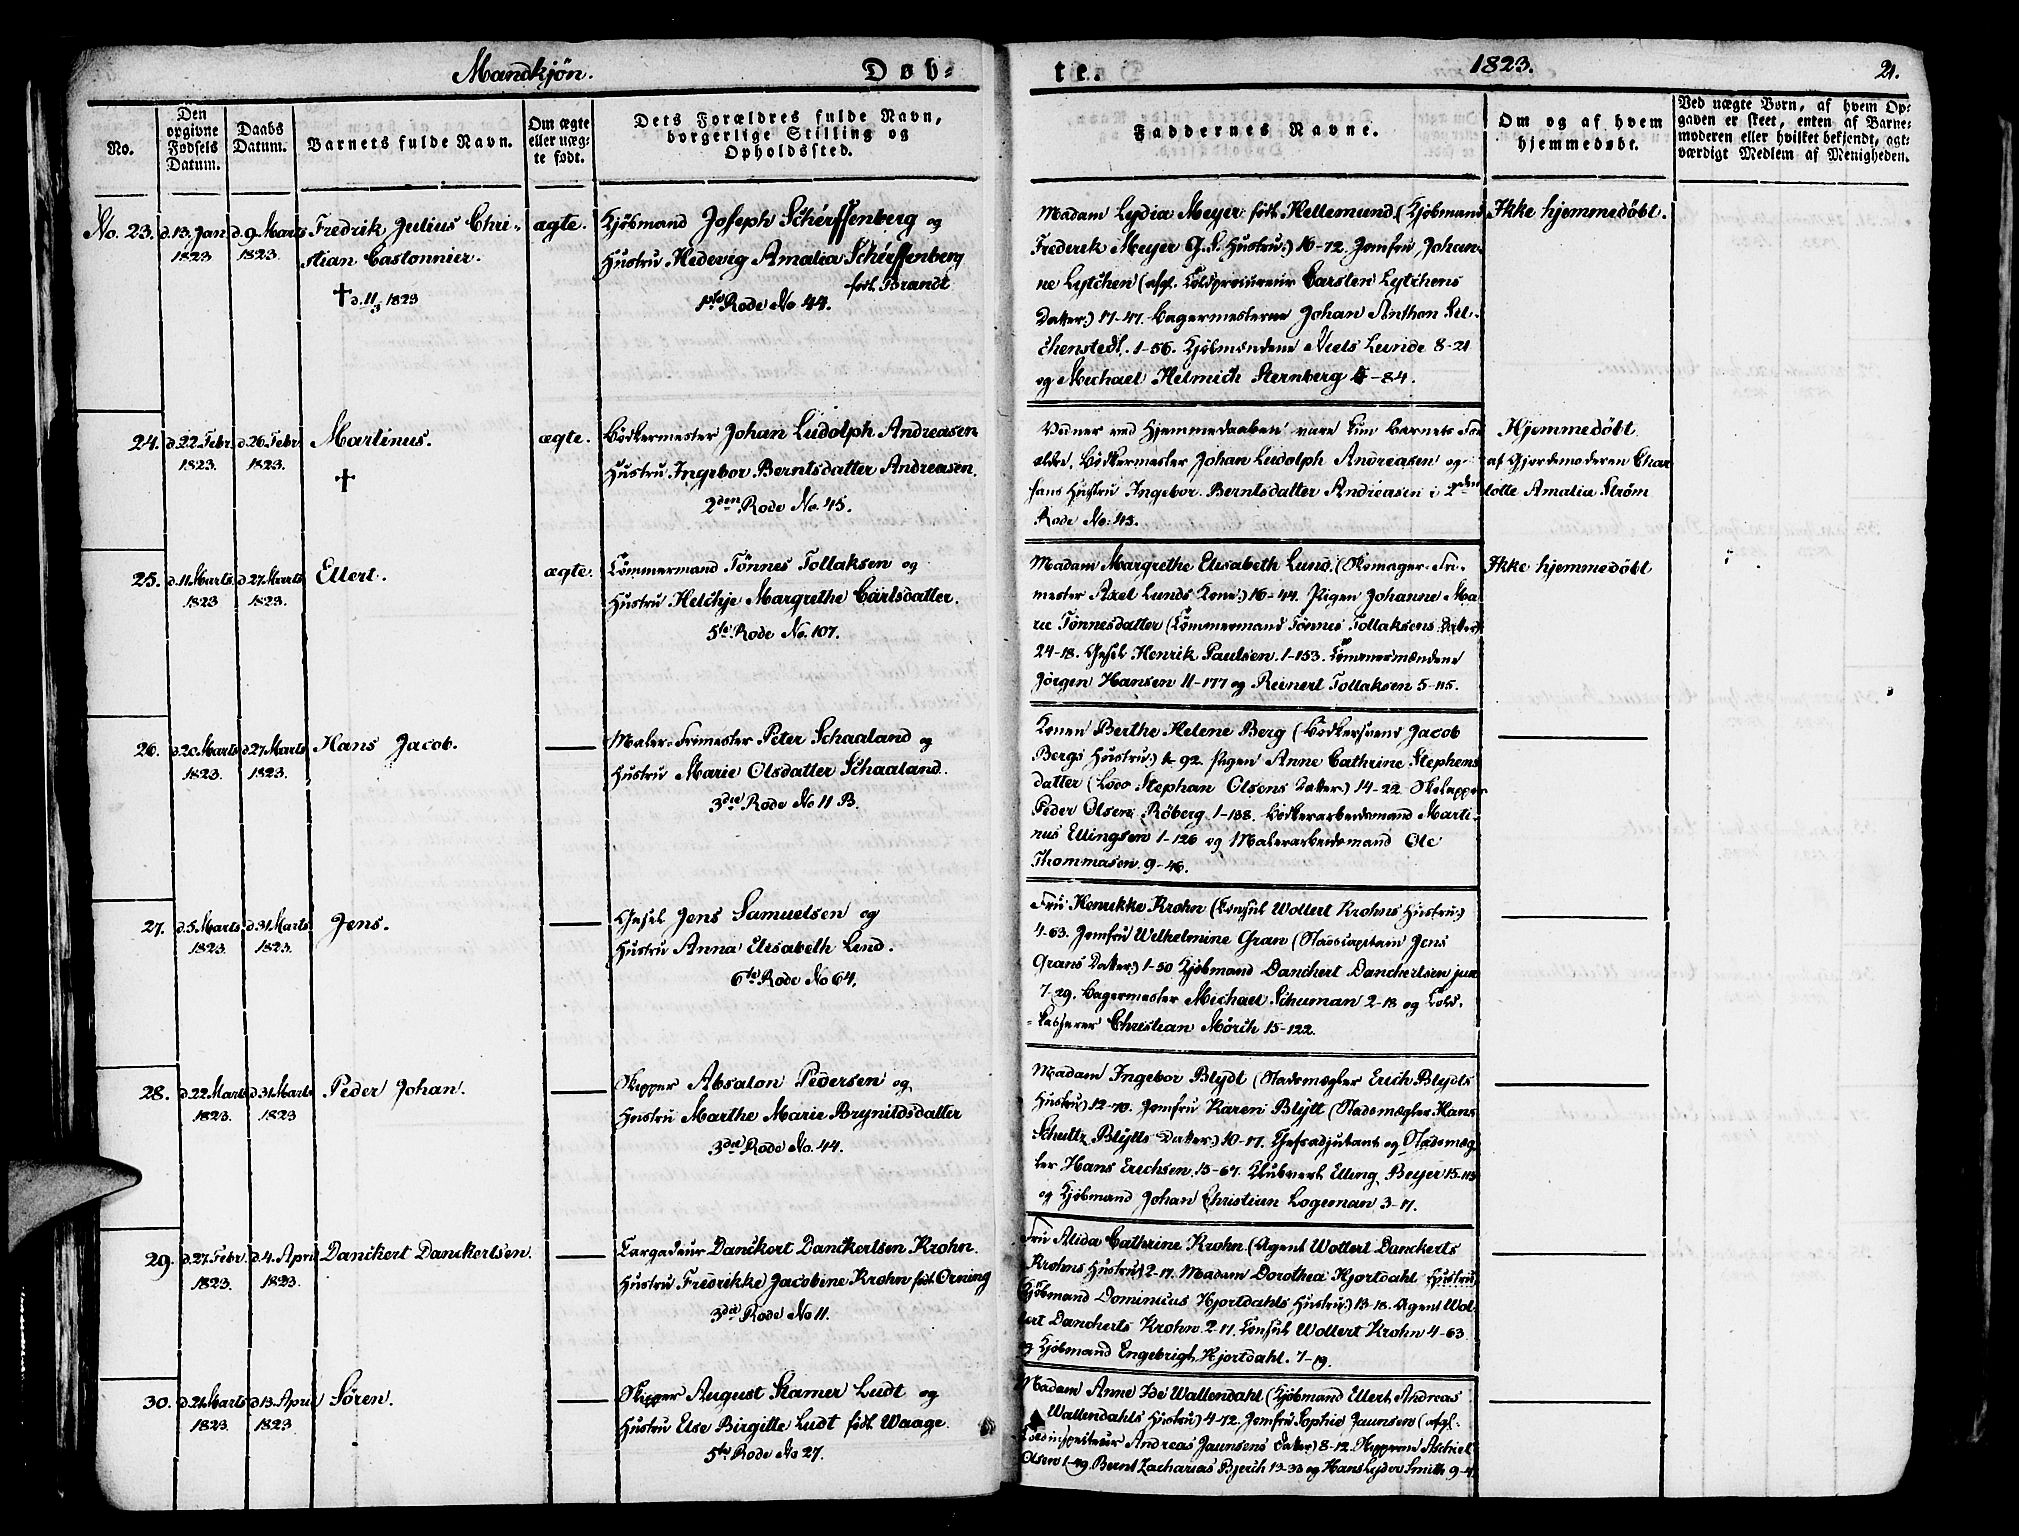 Mandkjøn.
Døb-
te.
1823.
21.
No.
Den
opgivne
Fødsels
Datum.
Daabs
Datum.
Barnets fulde Navn.
Om ægte
eller uæg-
te født.
Dets Forældres fulde Navn,
borgerlige Stilling og
Opholdssted.
Faddernes Navne.
Om og af hvem
hjemmedøbt.
Ved uægte Børn, af hvem Op-
gaven er skeet, enten af Barne-
moderen eller hvilket bekjendt, agt-
værdigt Medlem af Menigheden.
No. 23.
d. 13. Jan
1823
d. 9. Marts
1823.
Fredrik Julius Chri-
stian Castonnier.
† d. 11/3 1823
ægte.
Kjøbmand Joseph Scherffenberg og
Hustru Hedevig Amalia Scherffenberg
født Brandt
1ste Rode No. 44.
Madam Lydia Meyer født Hellemund (Kjøbmand
Frederik Meyer G. S. Hustru) 16-72. Jomfru Johan-
ne Lytchen (afgl. Toldprocureur Carsten Lytchens
Datter) 17-47. Bagermesterne Johan Anthon
1-56. Kjøbmændene Niels Lunde 8-21
og Michael Helmich Sternberg 4-84.
Ikke hjemmedøbt.
24.
d. 22. Febr.
1823.
d. 26. Febr.
1823.
Martinus.
†
ægte.
Bødkermester Johan Ludolph Andreasen
Hustru Ingebor Berntsdatter Andreasen.
2den Rode No. 45.
Vidner ved Hjemmedaaben vare kun Barnets For
ældre, Bødkermester Johan Ludolph Andreasen og
hans Hustru Ingebor Berntsdatter Andreasen i 2den
Rode No. 45.
Hjemmedøbt
af Gjordemoderen Char
lotte Amalia Strøm
25.
d. 11. Marts
1823
d. 27. Marts
1823.
Ellert.
ægte.
Tømmermand Tönnes Tollaksen og
Hustru Helchje Margrethe Carlsdatter.
5te Rode No. 107.
Madam Margrethe Elisabeth Lund. (Skomager-Fri-
mester Axel Lunds Kone) 16-44. Pigen Johanne Ma
rie Tönnesdatter (Tømmermand Tönnes Tollaksens Datter)
24-18. Gesel Henrik Paulsen. 1-153. Tømmermændene
Jørgen Hansen 11-177 og Reinert Tollaksen 5-115.
Ikke hjemmedøbt
26.
d. 20. Marts
1823.
d. 27. Marts
1823.
Hans Jacob.
Maler-Frimester Peter Schaaland og
Hustru Marie Olsdatter Schaaland.
3die Rode No 11 B.
Konen Berthe Helene Berg (Bødkersvend Jacob
Bergs Hustru) 92. Pigen Anne Cathrine Stephens
datter (Loco Stephan Olsens Datter) 14-22.
Peder Olsen Röberg 1-188. Bødkerarbeidsmand Marti-
nus Ellingsen 1-126 og Malerarbeidsmand Ole
Thommasen. 9-46.
27.
d. 5. Marts
1823.
d. 31. Marts
1823.
Jens.
Gesel Jens Samuelsen og
Hustru Anna Elisabeth Lind.
6te Rode No 64.
Fru Henrikke Krohn (Consul Wollert Krohns Hustru)
4-63. Jomfru Wilhelmine Gran (Stadscapitain Jens
Grans Datter) 1-50 Kjøbmand Danchert Danchertsen jun
7-29. Bagermester Michael Schuman 2-18 og Told-
kasserer Christian Mörch 15-122.
28.
d. 22. Marts
1823.
d. 31. Marts
1823
Peder Johan.
Skipper Absalon Pedersen og
Hustru Marthe Marie Brynildsdatter
3die Rode No. 44.
Madam Ingebor Blydt (Stadsmægler Erich Blydts
Hustru) 12-70. Jomfru Karen Blytt (Stadsmægler Hans
Schultz Blytts Datter) 10-17. Chefsadjutant og Stadsmæg
ler Hans Erichsen. 13-67. Klubvert Elling Beyer 15-113
og Kjøbmand Johan Christian Logeman 3-17.
29.
d. 27. Febr
1823.
d. 4. April
1823.
Danckert Danckertsen.
Cargadeur Danckert Danckertsen Krohn.
Hustru Fredrikke Jacobine Krohn født Orning
3die Rode No 11.
Fru Alida Cathrine Krohn. (Agent Wollert Danckerts
Krohns Hustru) 2-17. Madam Dorothea Hjortdahl Hustru,
Kjöbmand Dominicus Hjortdahls Hustru) 13-18. Agent Wol-
lert Dancherts Krohn. 2-17. Consul Wollert Krohn 4-63.
og Kjøbmand Engebrigt Hjortdahl. 7-19.
30.
d. 21. Marts
1823.
d. 13. April
1823
Søren.
Skipper August Stamer Ludt og
Hustru Else Birgitte Ludt født Waage.
5te Rode No 27.
Madam Anne Ide Wallendahl (Kjøbmand Ellert Andreas
Wallendahls Hustru) 4-12. Jomfru Sophie Jaunsen (afgl.
Toldinspecteur Andreas Jaunsens Datter) 8-12. Skipperne Aschiel
Olsen 1-19. Bernt Zacharias Bjerch 13-33 og Hans Lyder Smith 9-4